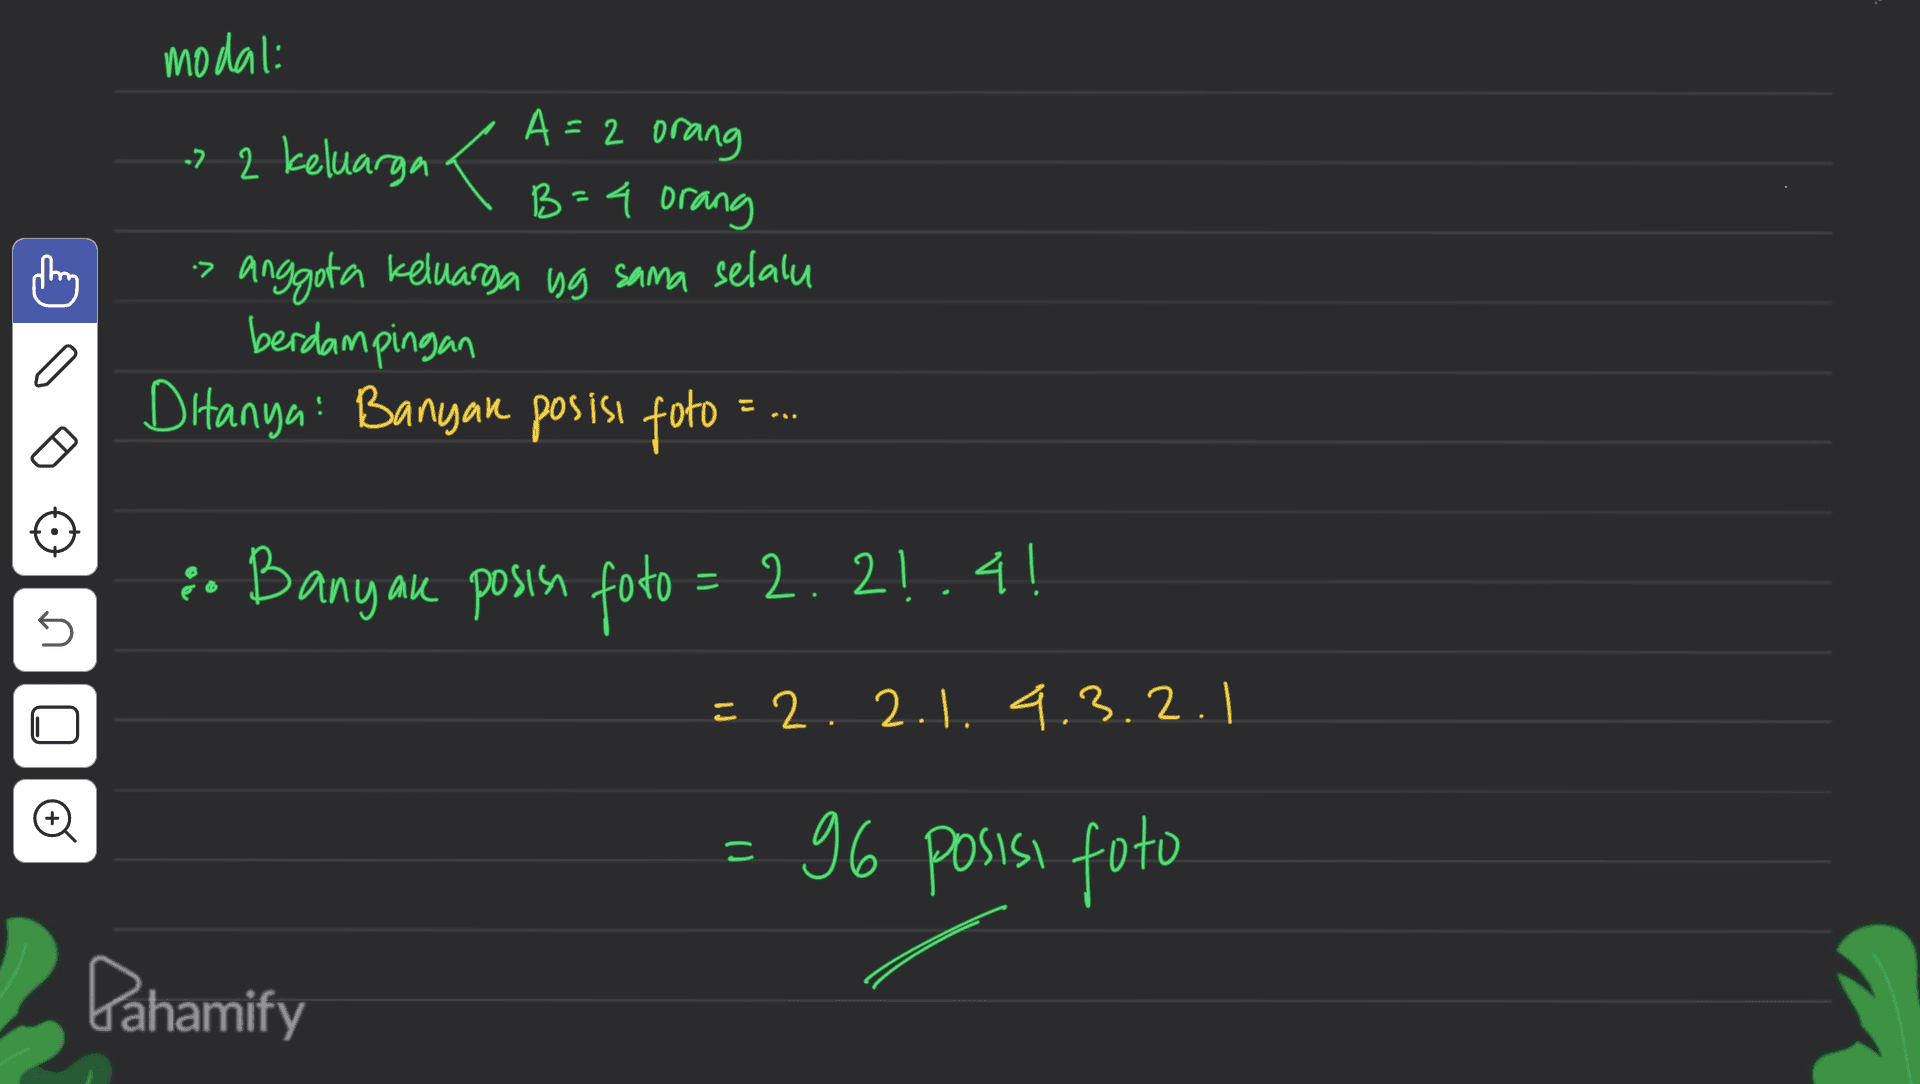 modal:
-> 2 keluarga < A = 2 orang
B = 4 orang
-> anggota keluarga yg sama selalu
berdampingan
Ditanya: Banyak posisi foto = ...
∴ Banyak posisi foto = 2. 2! . 4!
= 2. 2.1. 4.3.2.1
= 96 posisi foto
Pahamify